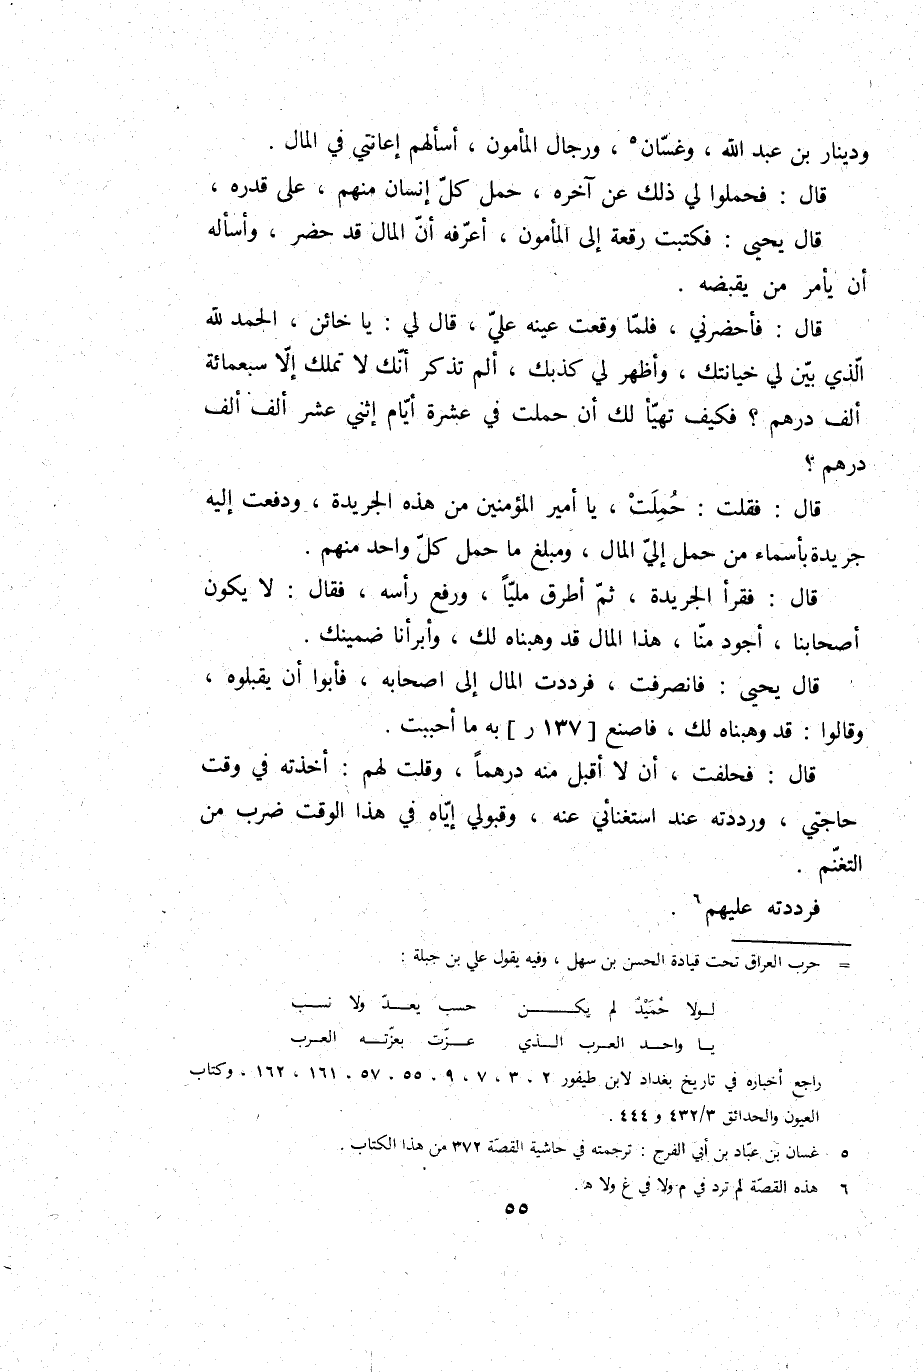 ودينار بن عبد الله ، وغسّان٥ ، ورجال المأمون ، أسألهم إعانتي في المال .
قال : فحملوا لي ذلك عن آخره ، حمل كلّ إنسان منهم ، على قدره ،
قال يحيى : فكتبت رقعة إلى المأمون ، أعرّفه أنّ المال قد حضر ، وأسأله
أن يأمر من يقبضه .
قال : فأحضرني ، فلمّا وقعت عينه عليّ ، قال لي : يا خائن ، الحمد لله
الّذي بيّن لي خيانتك ، وأظهر لي كذبك ، ألم تذكر أنّك لا تملك إلّا سبعمائة
ألف درهم ؟ فكيف تهيّأ لك أن حملت في عشرة أيّام إثني عشر ألف ألف
درهم ؟
قال : فقلت : حُمِلَتْ ، يا أمير المؤمنين من هذه الجريدة ، ودفعت إليه
جريدة بأسماء من حمل إليّ المال ، ومبلغ ما حمل كلّ واحد منهم .
قال : فقرأ الجريدة ، ثمّ أطرق مليّاً ، ورفع رأسه ، فقال : لا يكون
أصحابنا ، أجود منّا ، هذا المال قد وهبناه لك ، وأبرأنا ضمينك .
قال يحيى : فانصرفت ، فرددت المال إلى اصحابه ، فأبوا أن يقبلوه ،
وقالوا : قد وهبناه لك ، فاصنع [ ١٣٧ ر ] به ما أحببت .
قال : فحلفت ، أن لا أقبل منه درهماً ، وقلت لهم : أخذته في وقت
حاجتي ، ورددته عند استغنائي عنه ، وقبولي إيّاه في هذا الوقت ضرب من
التغنّم .
فرددته عليهم٦ .
= حرب العراق تحت قيادة الحسن بن سهل ، وفيه يقول علي بن جبلة :
لـولا حُمَيْدٌ لم يكـــــن حسب يعـــدّ ولا نســب
يـا واحـد العـرب الـذي عـــزّت بعزّتــه العـرب
راجع أخباره في تاريخ بغداد لابن طيفور ٢ ، ٣ ، ٧ ، ٩ ، ٥٥ ، ٥٧ ، ١٦١ ، ١٦٢ ، وكتاب
العيون والحدائق ٤٣٢/٣ و ٤٤٤ .
٥ غسان بن عبّاد بن أبي الفرج : ترجمته في حاشية القصّة ٣٧٢ من هذا الكتاب .
٦ هذه القصّة لم ترد في م ولا في غ ولا ه .
٥٥